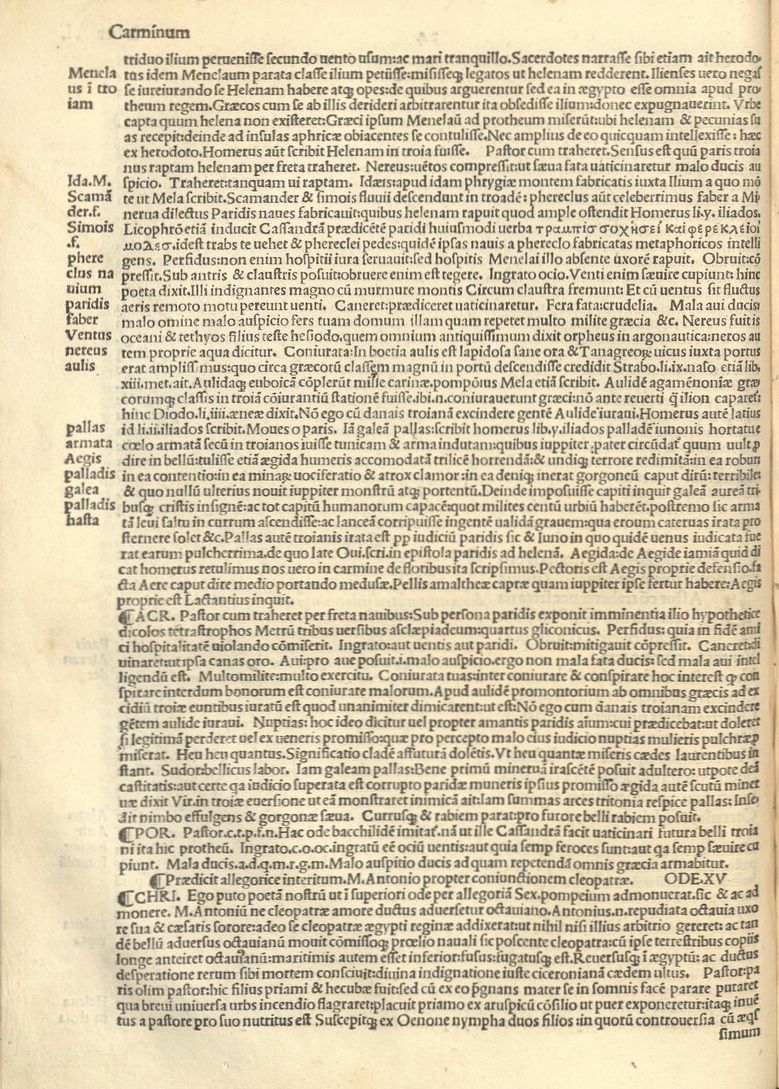 Carminum
triduo ilium peruenisse secundo uento usum:ac mari tranquillo.Sacerdotes narrasse sibi etiam ait herodo-
Menela
tus idem Menelaum parata classe ilium petiisse:misisseq; legatos ut helenam redderent.Ilienses uero negas
us i tro
se iureiurando se Helenam habere atq; opes:de quibus arguerentur sed ea in ægypto esse omnia apud pro
iam
theum regem.Græcos cum se ab illis derideri arbitrarentur ita obsedisse ilium:donec expugnauerint. Vrbe
capta quum helena non existeret:Græci ipsum Menelaū ad protheum miserūt:ubi helenam & pecunias su
as recepit:deinde ad insulas aphricæ obiacentes se contulisse.Nec amplius de eo quicquam intellexisse : hæc
ex herodoto.Homerus aūt scribit Helenam in troia fuisse. Pastor cum traheret.Sensus est quū paris troia
nus raptam helenam per freta traheret. Nereus:uētos compressit:ut sæua fata uaticinaretur malo ducis au
Ida.M.
spicio. Traheret:tanquam ui raptam. Idæis:apud idam phrygiæ montem fabricatis iuxta Ilium a quo mō
Scamā
te ut Mela scribit.Scamander & simois fluuii descendunt in troadē: phereclus aūt celeberrimus faber a Mi
der.f.
nerua dilectus Paridis naues fabricauit:quibus helenam rapuit quod ample ostendit Homerus li.y. iliados.
Simois
Licophrō etiā inducit Cassandrā prædicētē paridi huiusmodi uerba
.f.
idest trabs te uehet & phereclei pedes:quidē ipsas nauis a phereclo fabricatas metaphoricos intelli
phere
gens. Perfidus:non enim hospitii iura seruauit:sed hospitis Menelai illo absente uxorē rapuit. Obruit:cō
clus na
pressit.Sub antris & claustris posuit:obruere enim est tegere. Ingrato ocio.Venti enim sæuire cupiunt: hinc
uium
poeta dixit.Illi indignantes magno cū murmure montis Circum claustra fremunt: Et cū uentus sit fluctus
paridis
aeris remoto motu pereunt uenti. Caneret:prædiceret uaticinaretur. Fera fata:crudelia. Mala aui ducis:
faber
malo omine malo auspicio fers tuam domum illam quam repetet multo milite græcia &c. Nereus fuit is
Ventus
oceani & tethyos filius teste hesiodo.quem omnium antiquissimum dixit orpheus in argonautica:neros au
nereus
tem proprie aqua dicitur. Coniurata:In boetia aulis est lapidosa sane ora & Tanagreoȝ uicus iuxta portus
aulis
erat amplissimus:quo circa græcorū classem magnū in portū descendisse credidit Strabo.li.ix.naso etiā lib.
xiii.met.ait.Aulidaq; euboicā cōplerūt mille carinæ.pompōius Mela etiā scribit. Aulidē agamēnoniæ græ
corumq; classis in troiā cōiurantiū stationē fuisse.ibi.n.coniurauerunt græci:nō ante reuerti q̄ ilion caparet:
hinc Diodo.li.iiii.æneæ dixit.Nō ego cū danais troianā excindere gentē Aulide iuraui.Homerus autē latius
pallas
id li.ii.iliados scribit. Moues o paris. Iā galeā pallas:scribit homerus lib.y.iliados palladē iunonis hortatue
armata
cœlo armatā secū in troianos iuisse tunicam & arma indutam:quibus iuppiter pater circūdat' quum uult p
Aegis
dire in bellū:tulisse etiā ægida humeris accomodatā trilicē horrendā:& undiq; terrore redimitā:in ea robur:
palladis
in ea contentio:in ea minaȝ uociferatio & atrox clamor:in ea deniq; inerat gorgoneū caput dirū: terribile:
galea
& quo nullū ulterius nouit iuppiter monstrū atq; portentū.Deinde imposuisse capiti inquit galeā aureā tri-
palladis
busq; cristis insignē:ac tot capitū humanorum capacē:quot milites centū urbiū haberēt.postremo sic arma
hasta
tā leui saltu in currum ascendisse:ac lanceā corripuisse ingentē ualidā grauem:qua eroum cateruas irata pro
sternere solet &c.Pallas autē troianis irata est pp iudiciū paridis sic & Iuno in quo quidē uenus iudicata fue
rat earum pulcherrima.de quo late Oui.scri.in epistola paridis ad helenā. Aegida:de Aegide iamiā quid di
cat homerus retulimus nos uero in carmine de floribus ita scripsimus.Pectoris est Aegis proprie defensio.fa
cta Aere caput dire medio portando medusæ.Pellis amaltheæ capræ quam iuppiter ipse fertur habere:Aegis
proprie est Lactantius inquit.
¶ACR. Pastor cum traheret per freta nauibus:Sub persona paridis exponit imminentia ilio hypothetice
dicolos tetrastrophos Metrū tribus uersibus asclæpiadeum:quartus gliconicus. Perfidus: quia in fidē ami
ci hospitalitatē uiolando cōmiserit. Ingrato:aut uentis aut paridi. Obruit:mitigauit cōpressit. Caneret:di
uinaret:ut:ipsa canas oro. Aui:pro aue posuit.i.malo auspicio.ergo non mala fata ducis: sed mala aui intel
ligendū est. Multomilite:multo exercitu. Coniurata tuas:inter coniurare & conspirare hoc interest q con
spirare interdum bonorum est coniurare malorum.Apud aulidē promontorium ab omnibus græcis ad ex
cidiū troiæ euntibus iuratū est quod unanimiter dimicarent:ut est:Nō ego cum danais troianam excindere
gētem aulide iuraui. Nuptias: hoc ideo dicitur uel propter amantis paridis aīum:cui prædicebat:ut doleret
si legitimā perderet uel ex ueneris promisso:quæ pro percepto malo eius iudicio nuptias mulieris pulchræ p
miserat. Heu heu quantus.Significatio cladē affuturā dolētis.Vt heu quantæ miseris cædes laurentibus in
stant. Sudor:bellicus labor. Iam galeam pallas:Bene primū mineruā irascētē posuit adultero: utpote deā
castitatis:aut certe qa iudicio superata est corrupto paridæ muneris ipsius promisso ægida autē scutū miner
uæ dixit Vir.in troiæ euersione ut eā monstraret inimicā ait:Iam summas arces tritonia respice pallas: Inse-
dit nimbo effulgens & gorgonæ sæua. Currusq; & rabiem parat:pro furore belli rabiem posuit.
¶POR. Pastor.c.t.p.f.n.Hac ode bacchilidē imitat'.nā ut ille Cassandrā facit uaticinari futura belli troia
ni ita hic protheū. Ingrato.c.o.oc.ingratū eē ociū uentis:aut quia semp feroces sunt:aut qa semp sæuire cu
piunt. Mala ducis.a.d.q.m.r.g.m.Malo auspitio ducis ad quam repetendā omnis græcia armabitur.
¶Prædicit allegorice interitum.M.Antonio propter coniunctionem cleopatræ. ODE.XV
¶CHRI. Ego puto poetā nostrū ut i superiori ode per allegoriā Sex.pompeium admonuerat.sic & ac ad
monere. M.Antoniū ne cleopatræ amore ductus aduersetur octauiano. Antonius.n.repudiata octauia uxo
re sua & cæsaris sorore:adeo se cleopatræ ægypti reginæ addixerat:ut nihil nisi illius arbitrio gereret: ac tan
dē bellū aduersus octauianū mouit cōmissoq; prœlio nauali sic poscente cleopatra:cū ipse terrestribus copiis
longe anteiret octauianū:maritimis autem esset inferior:fusus:fugatusq; est.Reuersusq; i ægyptū: ac ductus
desperatione rerum sibi mortem consciuit:diuina indignatione iuste ciceronianā cædem ultus. Pastor:pa
ris olim pastor:hic filius priami & hecubæ fuit:sed cū ex eo p̄gnans mater se in somnis facē parare putaret
qua breui uniuersa urbs incendio flagraret:placuit priamo ex aruspicū cōsilio ut puer exponeretur:itaq; inuē
tus a pastore pro suo nutritus est Suscepitq; ex Oenone nympha duos filios : in quorū controuersia cū æqs
simum